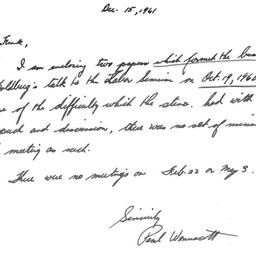 Dec. 15, 1961
Frank,
I am enclosing two papers which formed the bas
Goldberg's talk to the Labor Seminar on Oct. 19, 1960
of the difficulty which the steno. had with
and discussion, there was no set of minu
meeting as such.
There were no meetings on Feb. 22 or May 3.
Sincerely
Paul Wonnacott